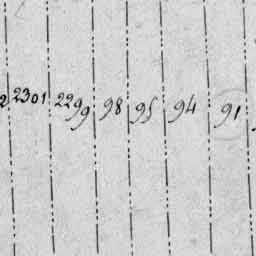 2 2301 2299 98 95 94 91